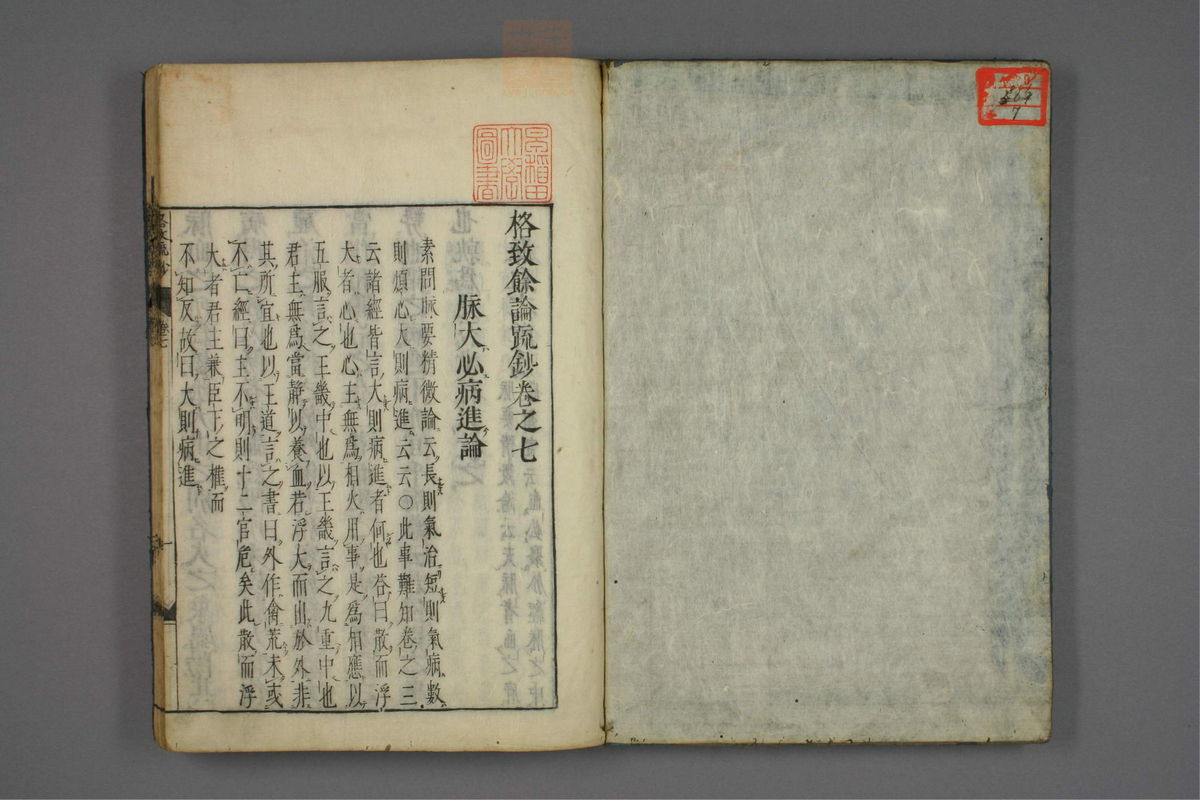 格致餘論疏鈔卷之七
脉大必病進論
素問脉要精微論云長則氣治短則氣病數
則煩心大則病進云云〇此事難知卷之三
云諸經皆言大則病進者何也答曰散而浮
大者心也心主無爲相火用事是爲相應以
五服言之王畿中也以王畿言之九重中也
君主無爲當靜以養血若浮大而出於外非
其所宜也以王道言之書曰外作禽荒未或
不亡經曰主不明則十二官危矣此散而浮
大者君主兼臣下之權而
不知反故曰大則病進
早稲田
大學
圖書
7